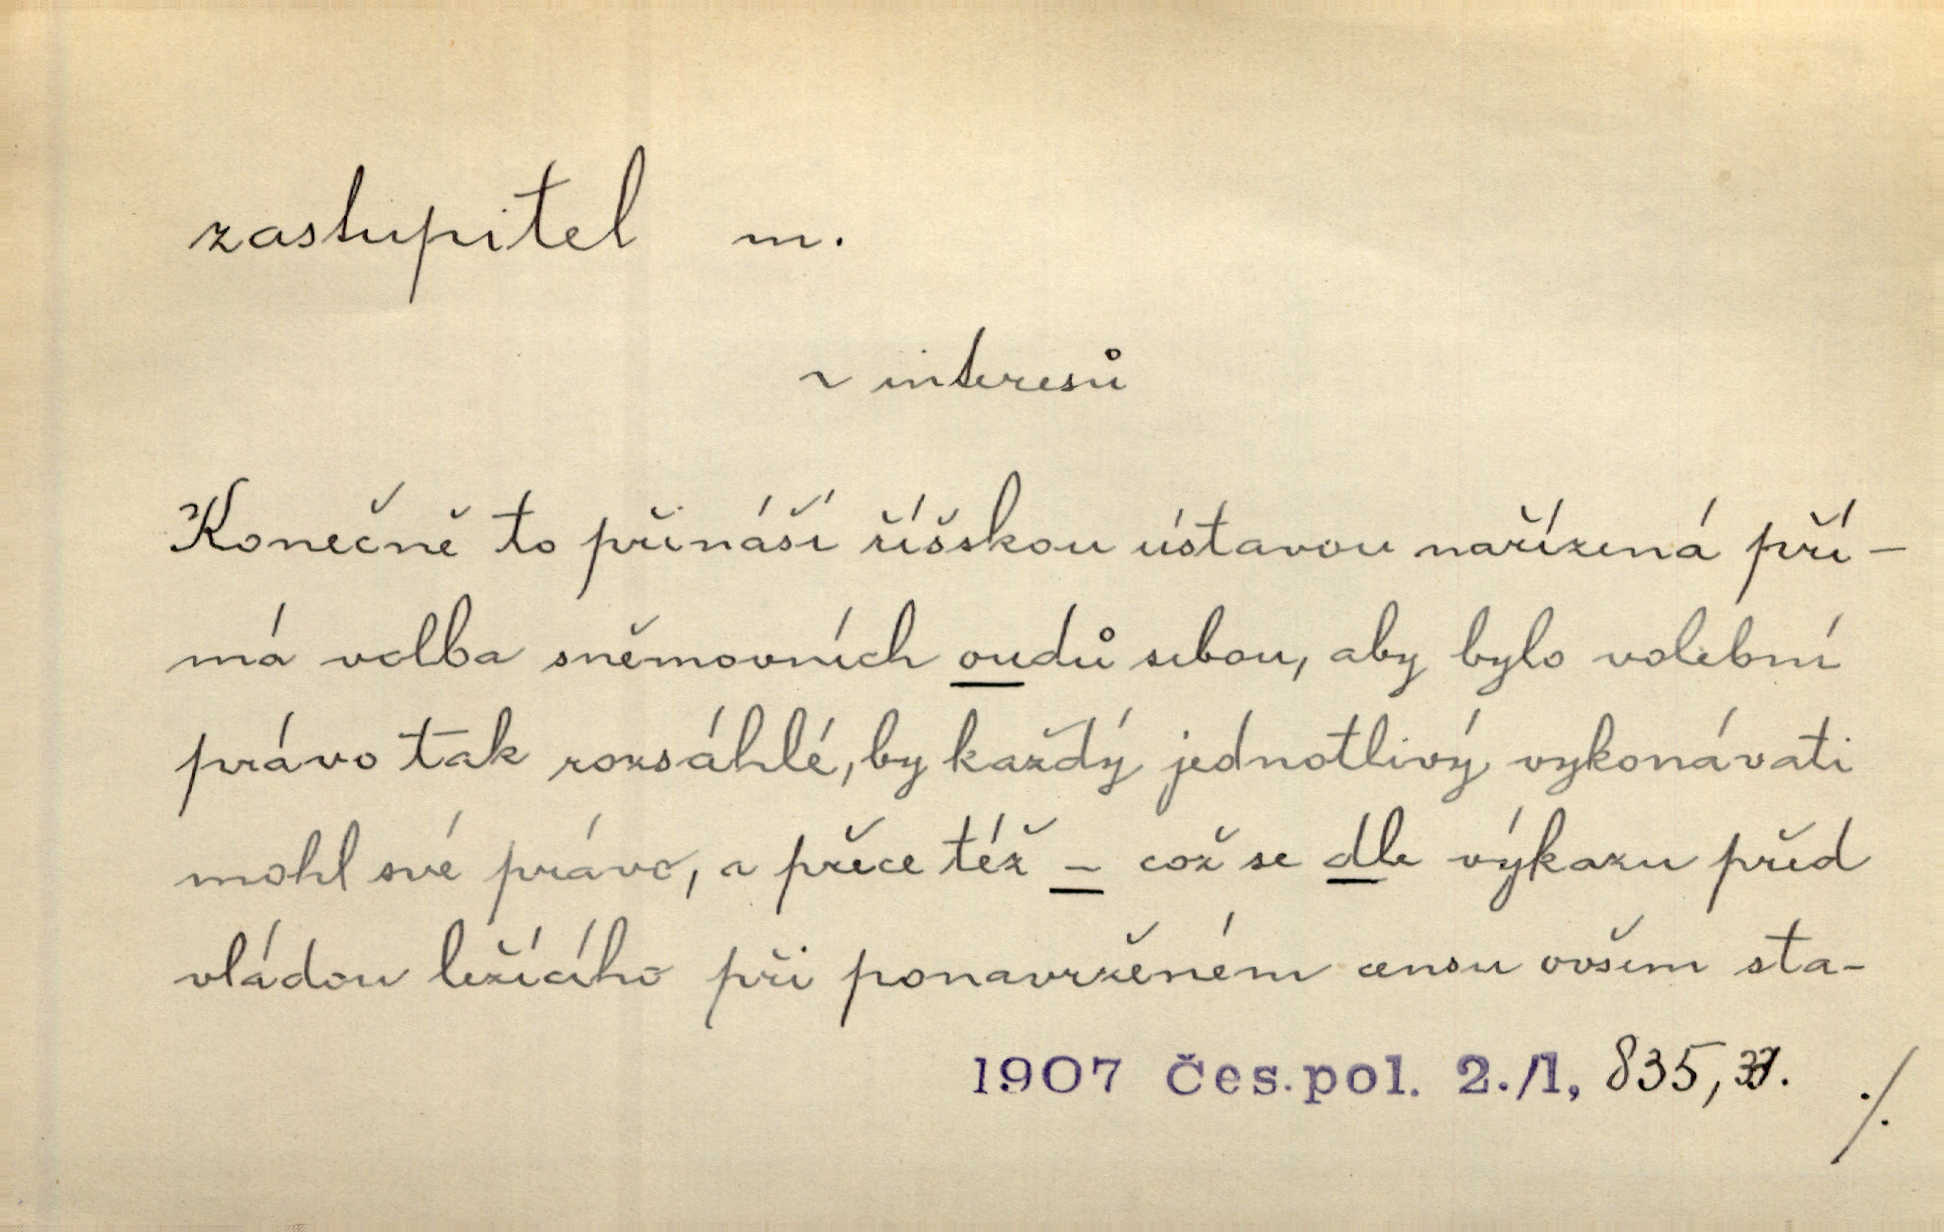 zastupitel m.
~ interesů
Konečně to přináší říšskou ústavou nařízená pří-
má volba sněmovních oudů sebou, aby bylo volební
právo tak rozsáhlé, by každý jednotlivý vykonávati
mohl své právo, a přece též ~ což se dle výkazu před
vládou ležícího při ponavrženém censu ovšem sta-
1907 čes.pol. 2./1, 835,
./.